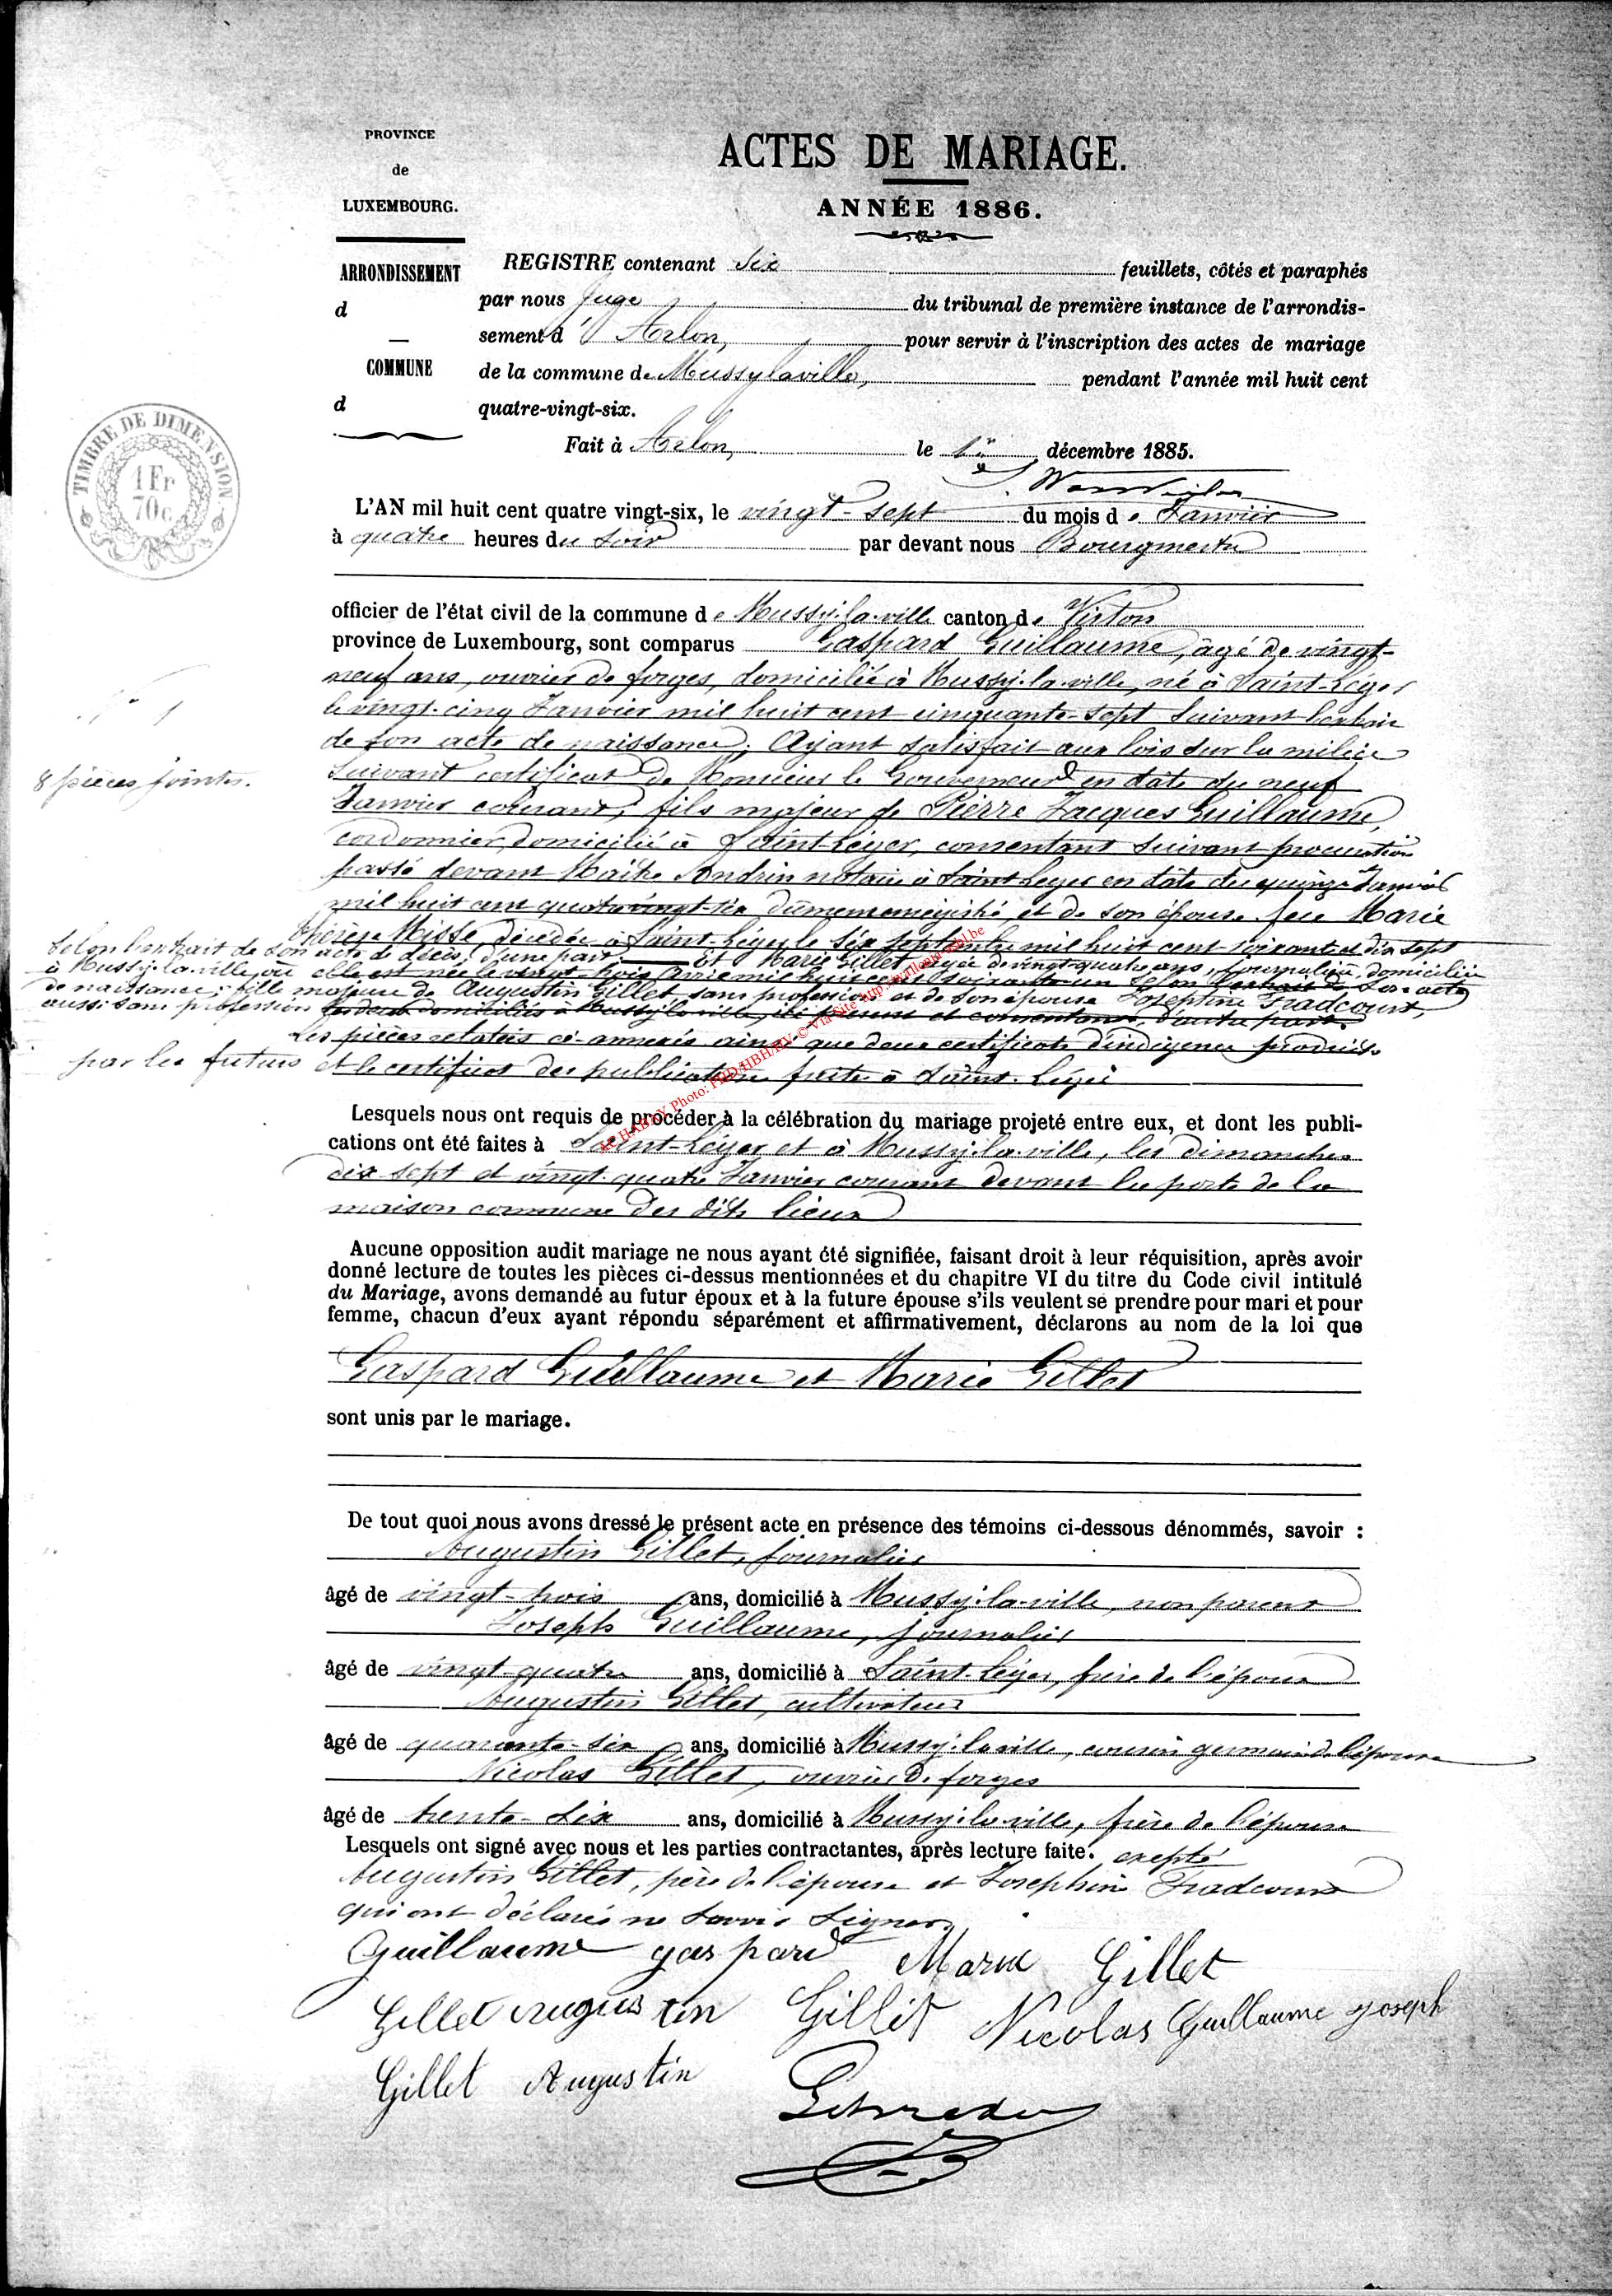 PROVINCE
de
LUXEMBOURG.
ARRONDISSEMENT
d
COMMUNE
d
TIMBRE DE DIMENSION
1 Fr
70 c
ACTES DE MARIAGE.
ANNÉE 1886.
REGISTRE contenant six feuillets, côtés et paraphés
par nous Juge du tribunal de première instance de l'arrondis-
sement d'Arlon, pour servir à l'inscription des actes de mariage
de la commune de Mussylaville, pendant l'année mil huit cent
quatre-vingt-six.
Fait à Arlon, le 1er décembre 1885.
L'AN mil huit cent quatre vingt-six, le vingt-sept du mois de Janvier
à quatre heures du soir par devant nous Bourgmestre
officier de l'état civil de la commune de Mussy-la-ville canton de Virton
province de Luxembourg, sont comparus Gaspard Guillaume, âgé de vingt-
neuf ans, ouvrier de forges, domicilié à Mussy-la-ville, né à Saint-Léger
le vingt-cinq Janvier mil huit cent cinquante-sept suivant l'extrait
de son acte de naissance; Ayant satisfait aux lois sur la milice
suivant certificat de Monsieur le Gouverneur en date du neuf
Janvier courant; fils majeur de Pierre Jacques Guillaume,
cordonnier, domicilié à Saint-Léger, consentant suivant procuration
passé devant Maître Andrin notaire à Saint Léger en date du quinze Janvier
mil huit cent quatre vingt-six dûment enregistré, et de son épouse feue Marie
Thérèse Misse, décédée à Saint-Léger le six septembre mil huit cent soixante et dix sept
selon l'extrait de son acte de décès; d'une part; et Marie Gillet, âgée de vingt-quatre ans, journalière, domiciliée
à Mussy-la-ville, où elle est née le vingt-trois Avril mil huit cent soixante un selon l'extrait de son acte
de naissance; fille majeure de Augustin Gillet sans profession et de son épouse Joséphine Fradcourt,
aussi sans profession tous deux domiciliés à Mussy-la-ville, ici présents et consentants, d'autre part.
Les pièces relatées ci-annexée ainsi que deux certificats d'indigence produits
par les futurs et le certificat des publications faites à Saint-Léger
N° 1
8 pièces jointes.
Lesquels nous ont requis de procéder à la célébration du mariage projeté entre eux, et dont les publi-
cations ont été faites à Saint-Léger et à Mussy-la-ville, les dimanches
dix sept et vingt-quatre Janvier courant devant la porte de la
maison commune des dits lieux
Aucune opposition audit mariage ne nous ayant été signifiée, faisant droit à leur réquisition, après avoir
donné lecture de toutes les pièces ci-dessus mentionnées et du chapitre VI du titre du Code civil intitulé
du Mariage, avons demandé au futur époux et à la future épouse s'ils veulent se prendre pour mari et pour
femme, chacun d'eux ayant répondu séparément et affirmativement, déclarons au nom de la loi que
Gaspard Guillaume et Marie Gillet
sont unis par le mariage.
De tout quoi nous avons dressé le présent acte en présence des témoins ci-dessous dénommés, savoir :
Augustin Gillet, journalier
âgé de vingt-trois ans, domicilié à Mussy-la-ville, non parent
Joseph Guillaume, journalier
âgé de vingt-quatre ans, domicilié à Saint-Léger, frère de l'époux
Augustin Gillet, cultivateur
âgé de quarante-six ans, domicilié à Mussy-la-ville, cousin germain de l'épouse
Nicolas Gillet, ouvrier de forges
âgé de trente-six ans, domicilié à Mussy-la-ville, frère de l'épouse
Lesquels ont signé avec nous et les parties contractantes, après lecture faite. exepté
Augustin Gillet, père de l'épouse et Joséphine Fradcourt
qui ont déclaré ne savoir signer.
Guillaume gaspard Marie Gillet
Gillet augustin Gillet Nicolas Guillaume joseph
Gillet Augustin